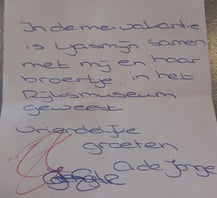 In de meivakantie
is Yasmijn samen
met mij en haar
broertje in het
Rijksmuseum
geweest
vriendelijke
groeten
A de Jonge